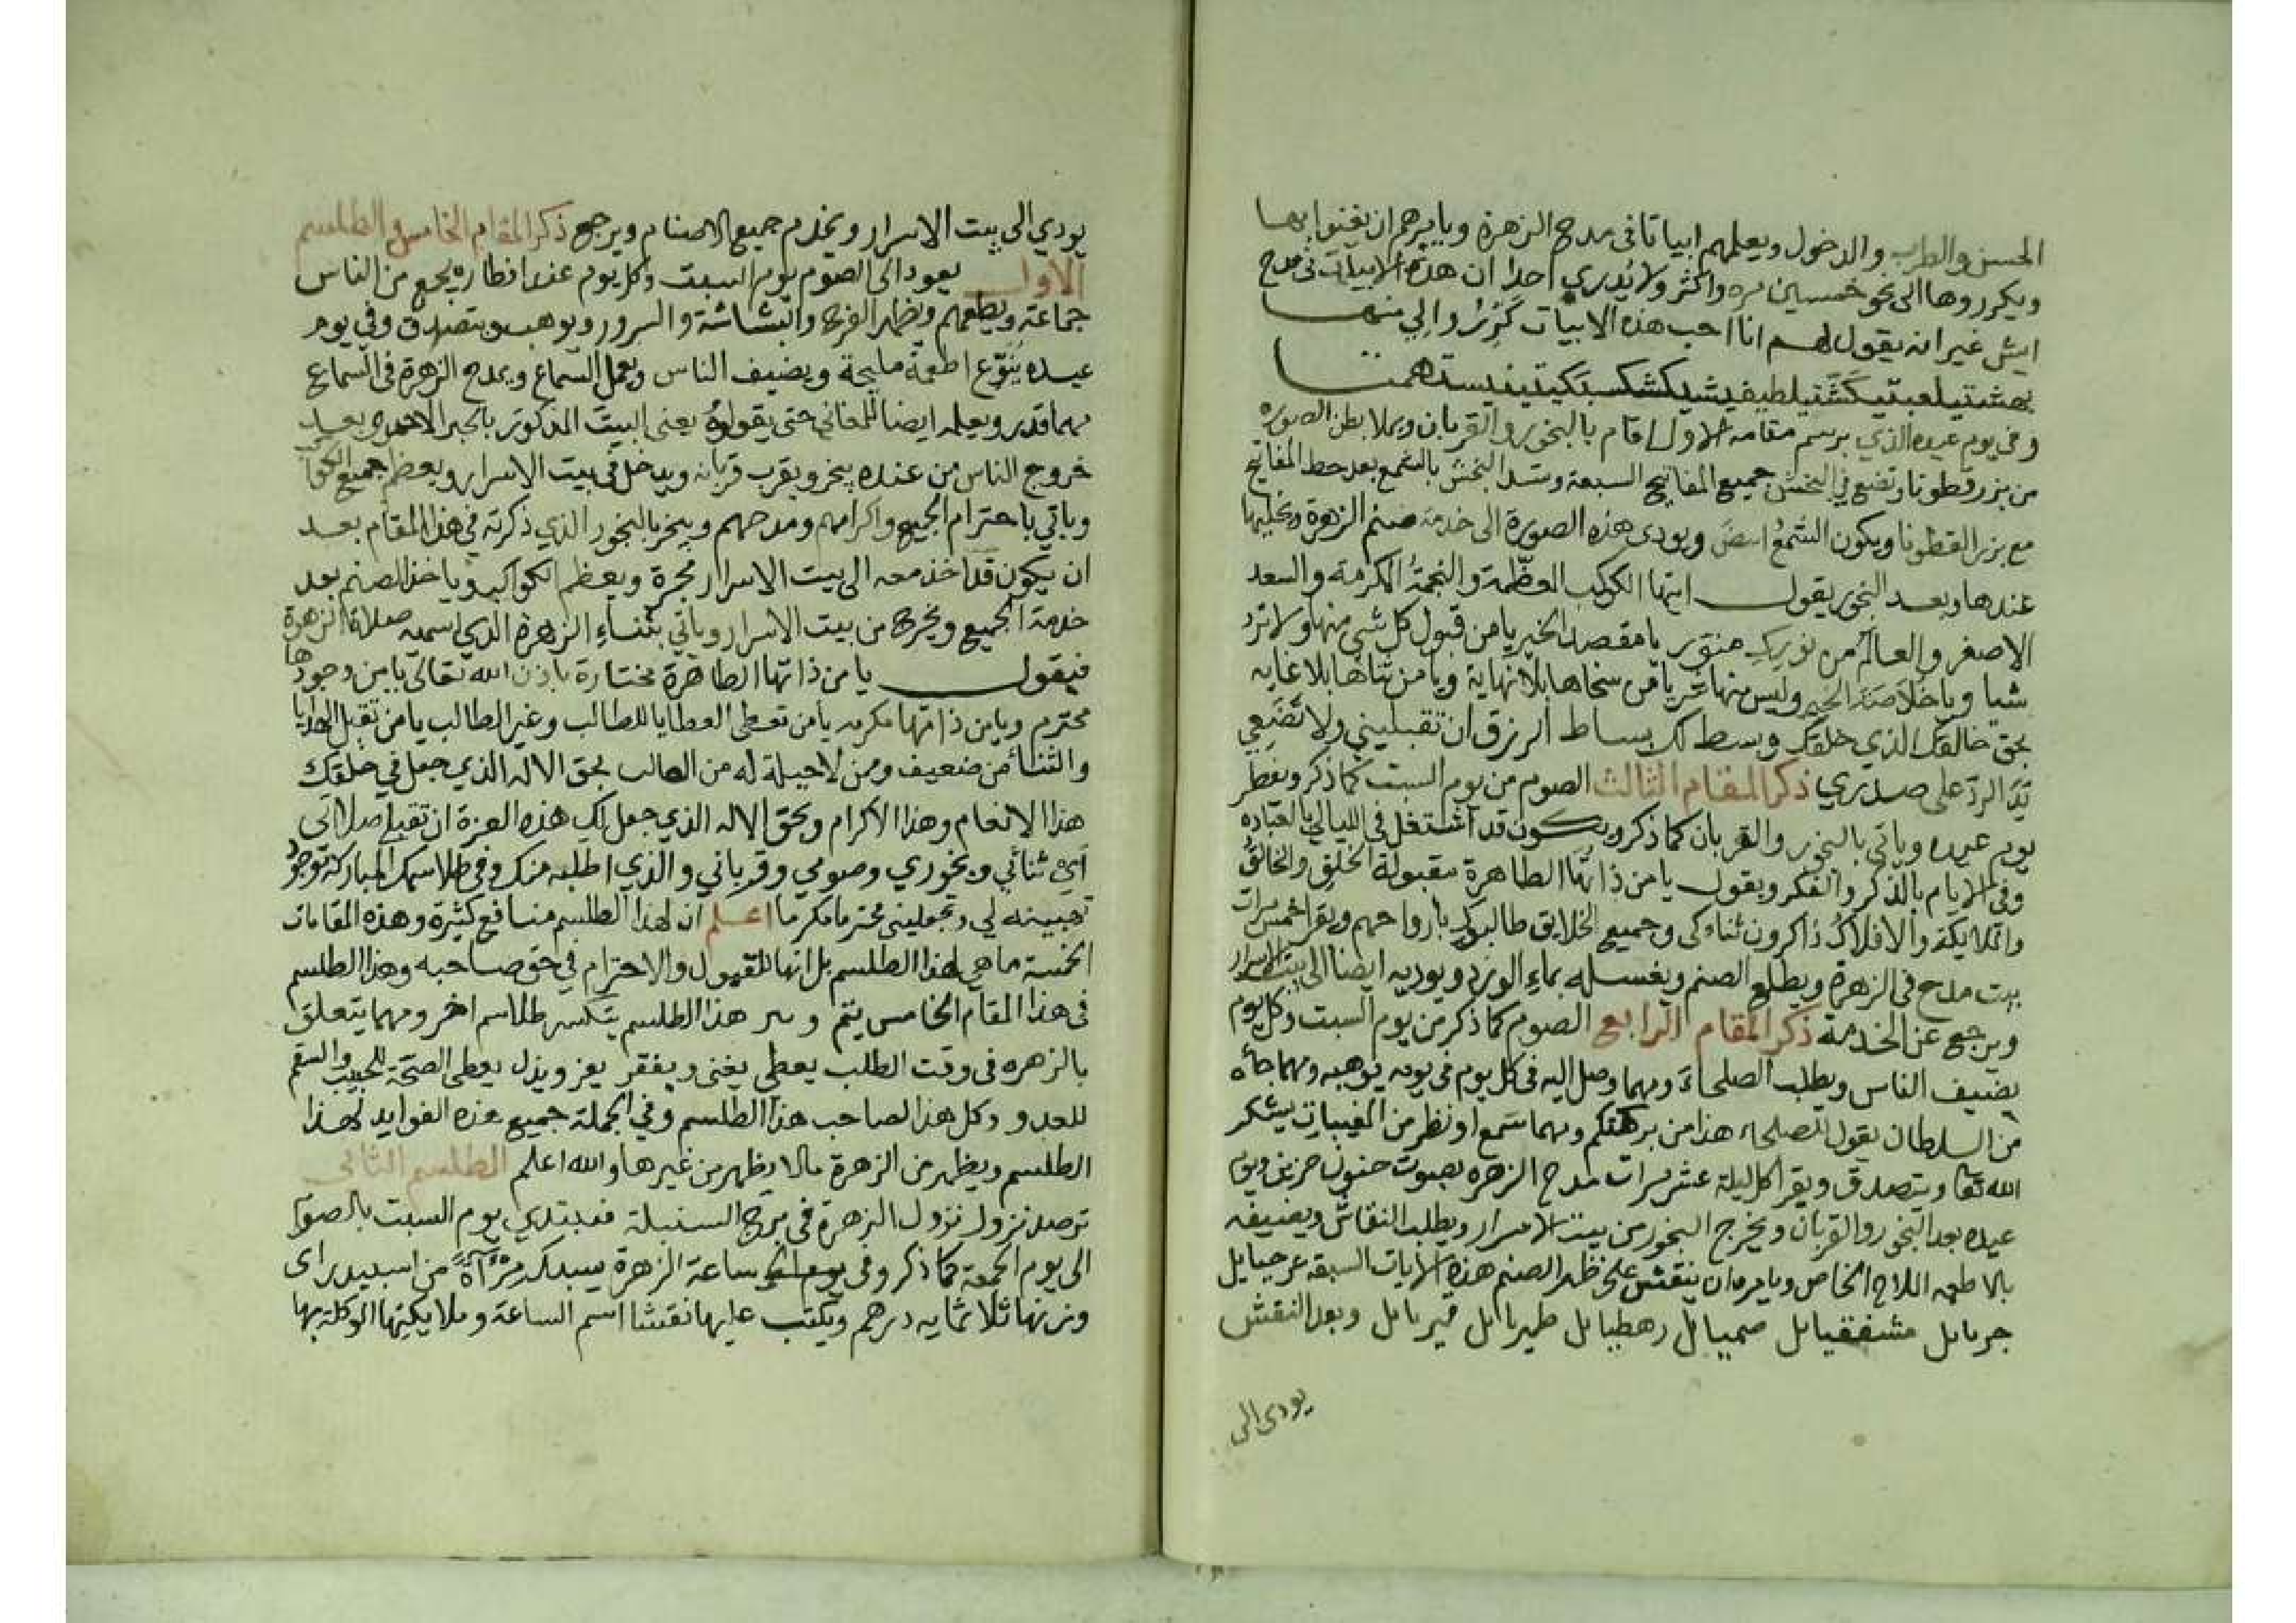 الحسن والطرب والدخول ويعلمهم ابياتا فى مدح الزهرة ويامرهم ان يغنوا بها
ويكرروها الى نحو خمسين مره واكثر ولا يدري احدا ان هذه الابيات فى مدح
ايش غير انه يقول لهم انا احب هذه الابيات كرروا لي منها
وفى يوم عيده الذي برسم مقامه الاول اقام بالبخور والقربان ويملا بطن الصوره
من بزر قطونا وتضع في البخش جميع المفاتيح السبعة وتسد البخش بالشمع بعد حط المفاتيح
مع بزر القطونا ويكون الشمع ابيض ويودى هذه الصورة الى خدمة صنم الزهرة ويخليها
عندها وبعد البخور يقول ايتها الكوكب المعظمة والنجمة المكرمة والسعد
الاصغر والعالم من نورك منور يا مقصد الخير يا من قبول كل شى منها ولا ترد
شيا ويا خلاصة الخير وليس منها شر يا من سخاها بلا نهاية ويا من ثناها بلا غايه
بحق خالقك الذي خلقك وبسط لك بساط الرزق ان تقبليني ولا تضعي
يد الرد على صدري ذكر المقام الثالث الصوم من يوم السبت كما ذكر ويفطر
يوم عيده وياتى بالبخور والقربان كما ذكر ويكون قد اشتغل فى الليالي بالعباده
وفى الايام بالذكر والفكر ويقول يا من ذاتها الطاهرة مقبولة الخلق والخالق
والملايكة والافلاك ذاكرون ثناءكى وجميع الخلايق طالبوكى بارواحهم ويقرا خمس مرات
بيت مدح فى الزهرة ويطلع الصنم ويغسله بماء الورد ويوديه ايضا الى بيت الاسرار
ويرجع عن الخدمة ذكر المقام الرابع الصوم كما ذكر من يوم السبت وكل يوم
يضيف الناس ويطلب الصلحاء ومهما وصل اليه فى كل يوم فى يومه يوهبه ومهما جاه
من السلطان يقول للصلحاء هذا من بركتكم ومهما سمع او نظر من المغيبات يشكر
الله تعا ويتصدق ويقرا كل ليلة عشر مرات مدح الزهره بصوت حنون حزين ويوم
عيده بعد البخور والقربان ويخرج البخور من بيت الاسرار ويطلب النقاش ويضيفه
بالاطعمه الملاح الخاص ويامره ان ينقش على ظهر الصنم هذه الايات السبعة عرجيايل
جريايل مشفقيايل صمييايل رهطيايل طهريايل قيريايل وبعد النقش
يودى الى
يودي الى بيت الاسرار ويخدم جميع الاصنام ويرجع ذكر المقام الخامس والطلسم
الاول يعود الى الصوم يوم السبت وكل يوم عند افطاره يجمع من الناس
جماعة ويطعمهم ويظهر الفرح والبشاشة والسرور ويوهب ويتصدق وفي يوم
عيده ينوع اطعمة مليحة ويضيف الناس ويعمل السماع ويمدح الزهرة فى السماع
مهما قدر ويعلمه ايضا للمغاني حتى يقولوه يعنى البيت المذكور بالحبر الاحمر وبعد
خروج الناس من عنده يبخر ويقرب قربانه ويدخل فى بيت الاسرار ويعظم جميع الكواكب
وياتي باحترام الجميع واكرامهم ومدحهم ويبخر بالبخور الذي ذكرته في هذا المقام بعد
ان يكون قد اخذ معه الى بيت الاسرار مجمرة ويعظم الكواكب وياخذ الصنم بعد
خدمة الجميع ويخرج من بيت الاسرار وياتي بثناء الزهرة الذي اسميه صلاة الزهرة
فيقول يا من ذاتها الطاهرة مختارة باذن الله تعالى يا من وجودها
محترم ويا من ذاتها مكرمه يا من تعطى العطايا للطالب وغير الطالب يا من تقبل الهدايا
والثناء من ضعيف ومن لا حيلة له من الطالب بحق الاله الذي جعل في خلقك
هذا الانعام وهذا الاكرام وبحق الاله الذي جعل لك هذه العزة ان تقبلي صلاتى
اي ثنائي وبخوري وصومي وقرباني والذي اطلبه منك وفي طلاسمك المباركة توجد
تهبينه لي وتجعليني محترما مكرما اعلم ان لهذا الطلسم منافع كثيرة وهذه المقامات
الخمسة ما هي لهذا الطلسم بل انها للقبول والاحترام في حق صاحبه وهذا الطلسم
فى هذا المقام الخامس يتم وسر هذا الطلسم يتكسر طلاسم اخر ومهما يتعلق
بالزهره فى وقت الطلب يعطي يغنى ويفقر يعز ويذل يعطى الصحة للحبيب والسقم
للعدو وكل هذا لصاحب هذا الطلسم وفي الجملة جميع هذه الفوايد لهذا
الطلسم ويظهر من الزهرة ما لا يظهر من غيرها والله اعلم الطلسم الثانى
ترصد نزول نزول الزهرة فى برج السنبلة فيبتدي يوم السبت بالصوم
الى يوم الجمعة كما ذكر وفى ساعة الزهرة يسبك مرآة من اسبيدراى
وزنها ثلاثمايه درهم ويكتب عليها نقشا اسم الساعة وملايكتها الموكلة بها